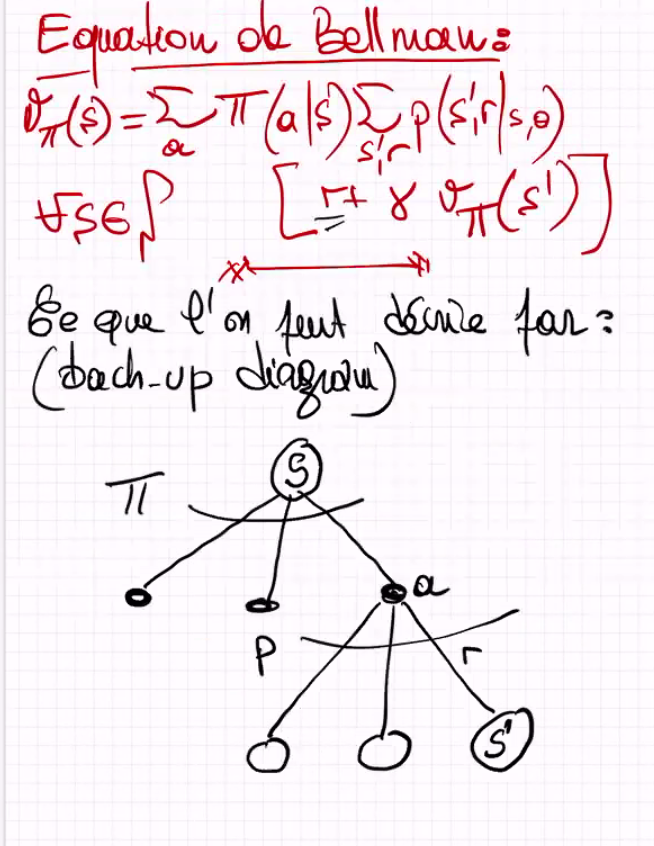 Equation de Bellman:
v_π(s) = Σ_a π(a|s) Σ_{s',r} p(s',r|s,a)
∀s∈S [r + γ v_π(s')]
Ce que l'on peut décrire par:
(back-up diagram)
S
π
a
p r
S'